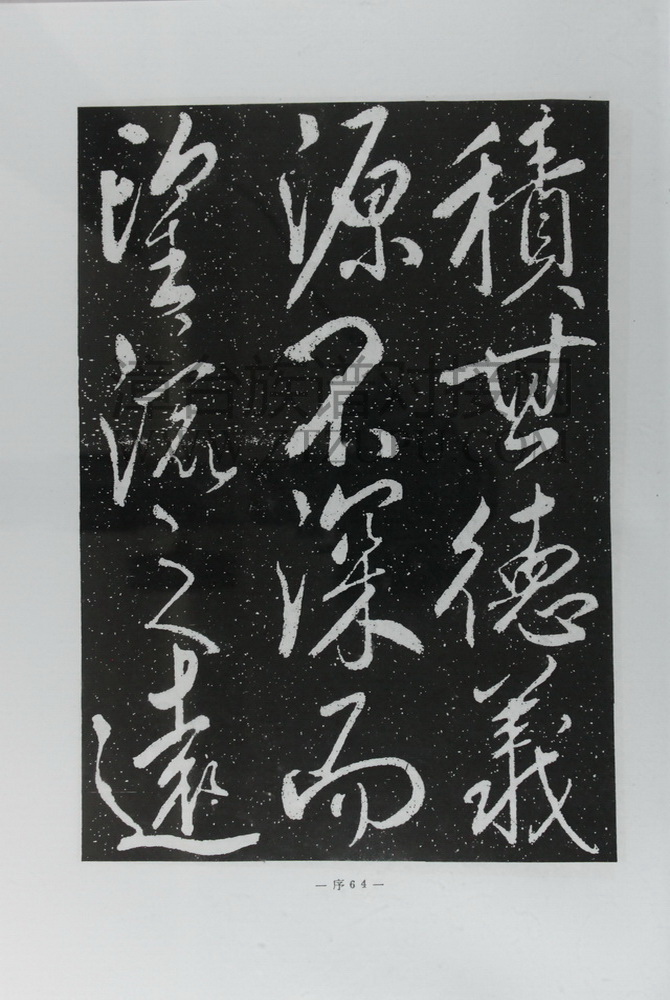 積其德義
源不深而
望流之遠
—序64—